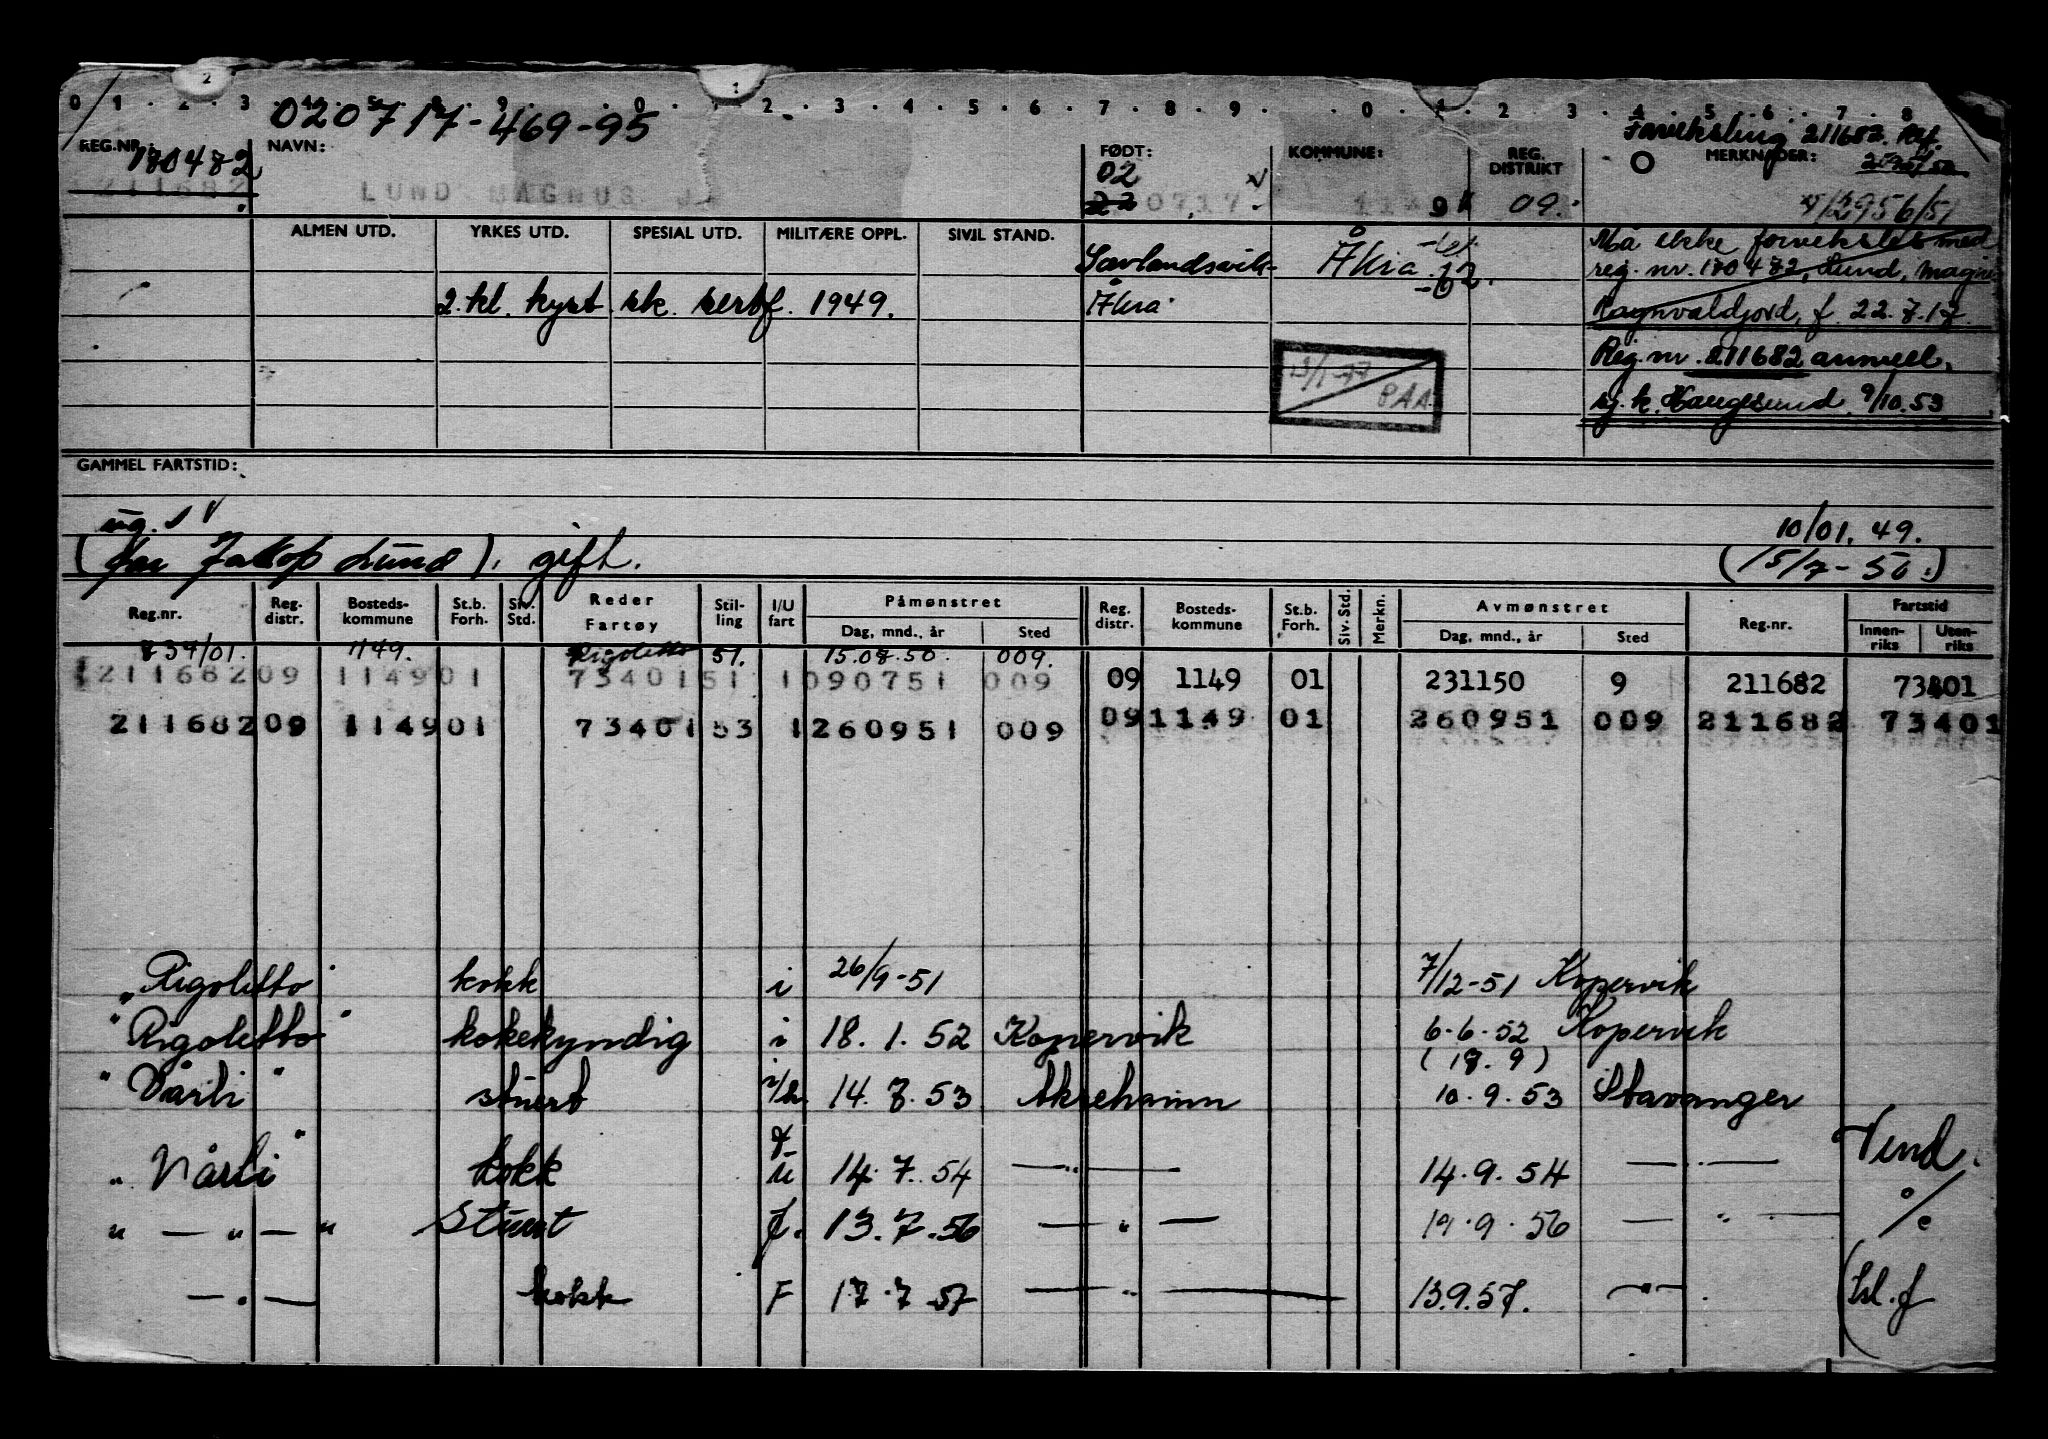 0 1 . 2 . 3 . 4 . 5 . 8 . 9 . . 0 . . 2 . 3 . 4 . 5 . 6 . 7 . 8 . 9 . . 0 . 1 . 2 . 3 . 4 . 5 . 6 . 7 . 8
020717-469-95
Forveksling 211682.
REG.NR.: NAVN: FØDT: KOMMUNE: REG. DISTRIKT MERKNADER:
180472 02
211682 LUND MAGNUS J. 22 0717 09. 2956/51
ALMEN UTD. YRKES UTD. SPESIAL UTD. MILITÆRE OPPL. SIVIL STAND.
Sævlandsvik- Åkra Må ikke forveksles med
reg. nr. 180472, Lund, Magne
2. kl. kyst sk. sertf. 1949. Åkra Ragnvaldjord, f. 22.7.17.
Reg.nr. 211682 annull.
13/1-77 PAA
sj.k. Haugesund 9/10.53
GAMMEL FARTSTID:
ug. 10/01.49.
(far Jakop Lund). gift. (15/7-50.)
Reg.nr. Reg. distr. Bosteds- kommune St.b. Forh. Siv. Std. Reder Fartøy Stil- ling I/U fart Påmønstret Dag, mnd., år Sted Reg. distr. Bosteds- kommune St.b. Forh. Siv. Std. Merkn. Avmønstret Dag, mnd., år Sted Reg.nr. Fartstid Innen- riks Uten- riks
839/01. 1149. Rigoletto 51. 15.08.50. 009.
211682 09 1149 01 73401 51 1 090751 009 09 1149 01 231150 9 211682 73401
211682 09 1149 01 73401 53 1 260951 009 09 1149 01 260951 009 211682 73401
"Rigoletto" kokk i 26/9-51 7/12-51 Kopervik
"Rigoletto" kokekyndig i 18.1.52 Kopervik 6.6.52 Kopervik
(18.9)
"Vårli" stuert 14.7.53 Åkrehamn 10.9.53 Stavanger
"Vårli" kokk u 14.7.54 — " — 14.9.54 — " —
" — " — " Stuert f. 13.7.56 — " — 19.9.56 — " —
— " — kokk F 17.7.57 — " — 13.9.57. — " — (Isl. f